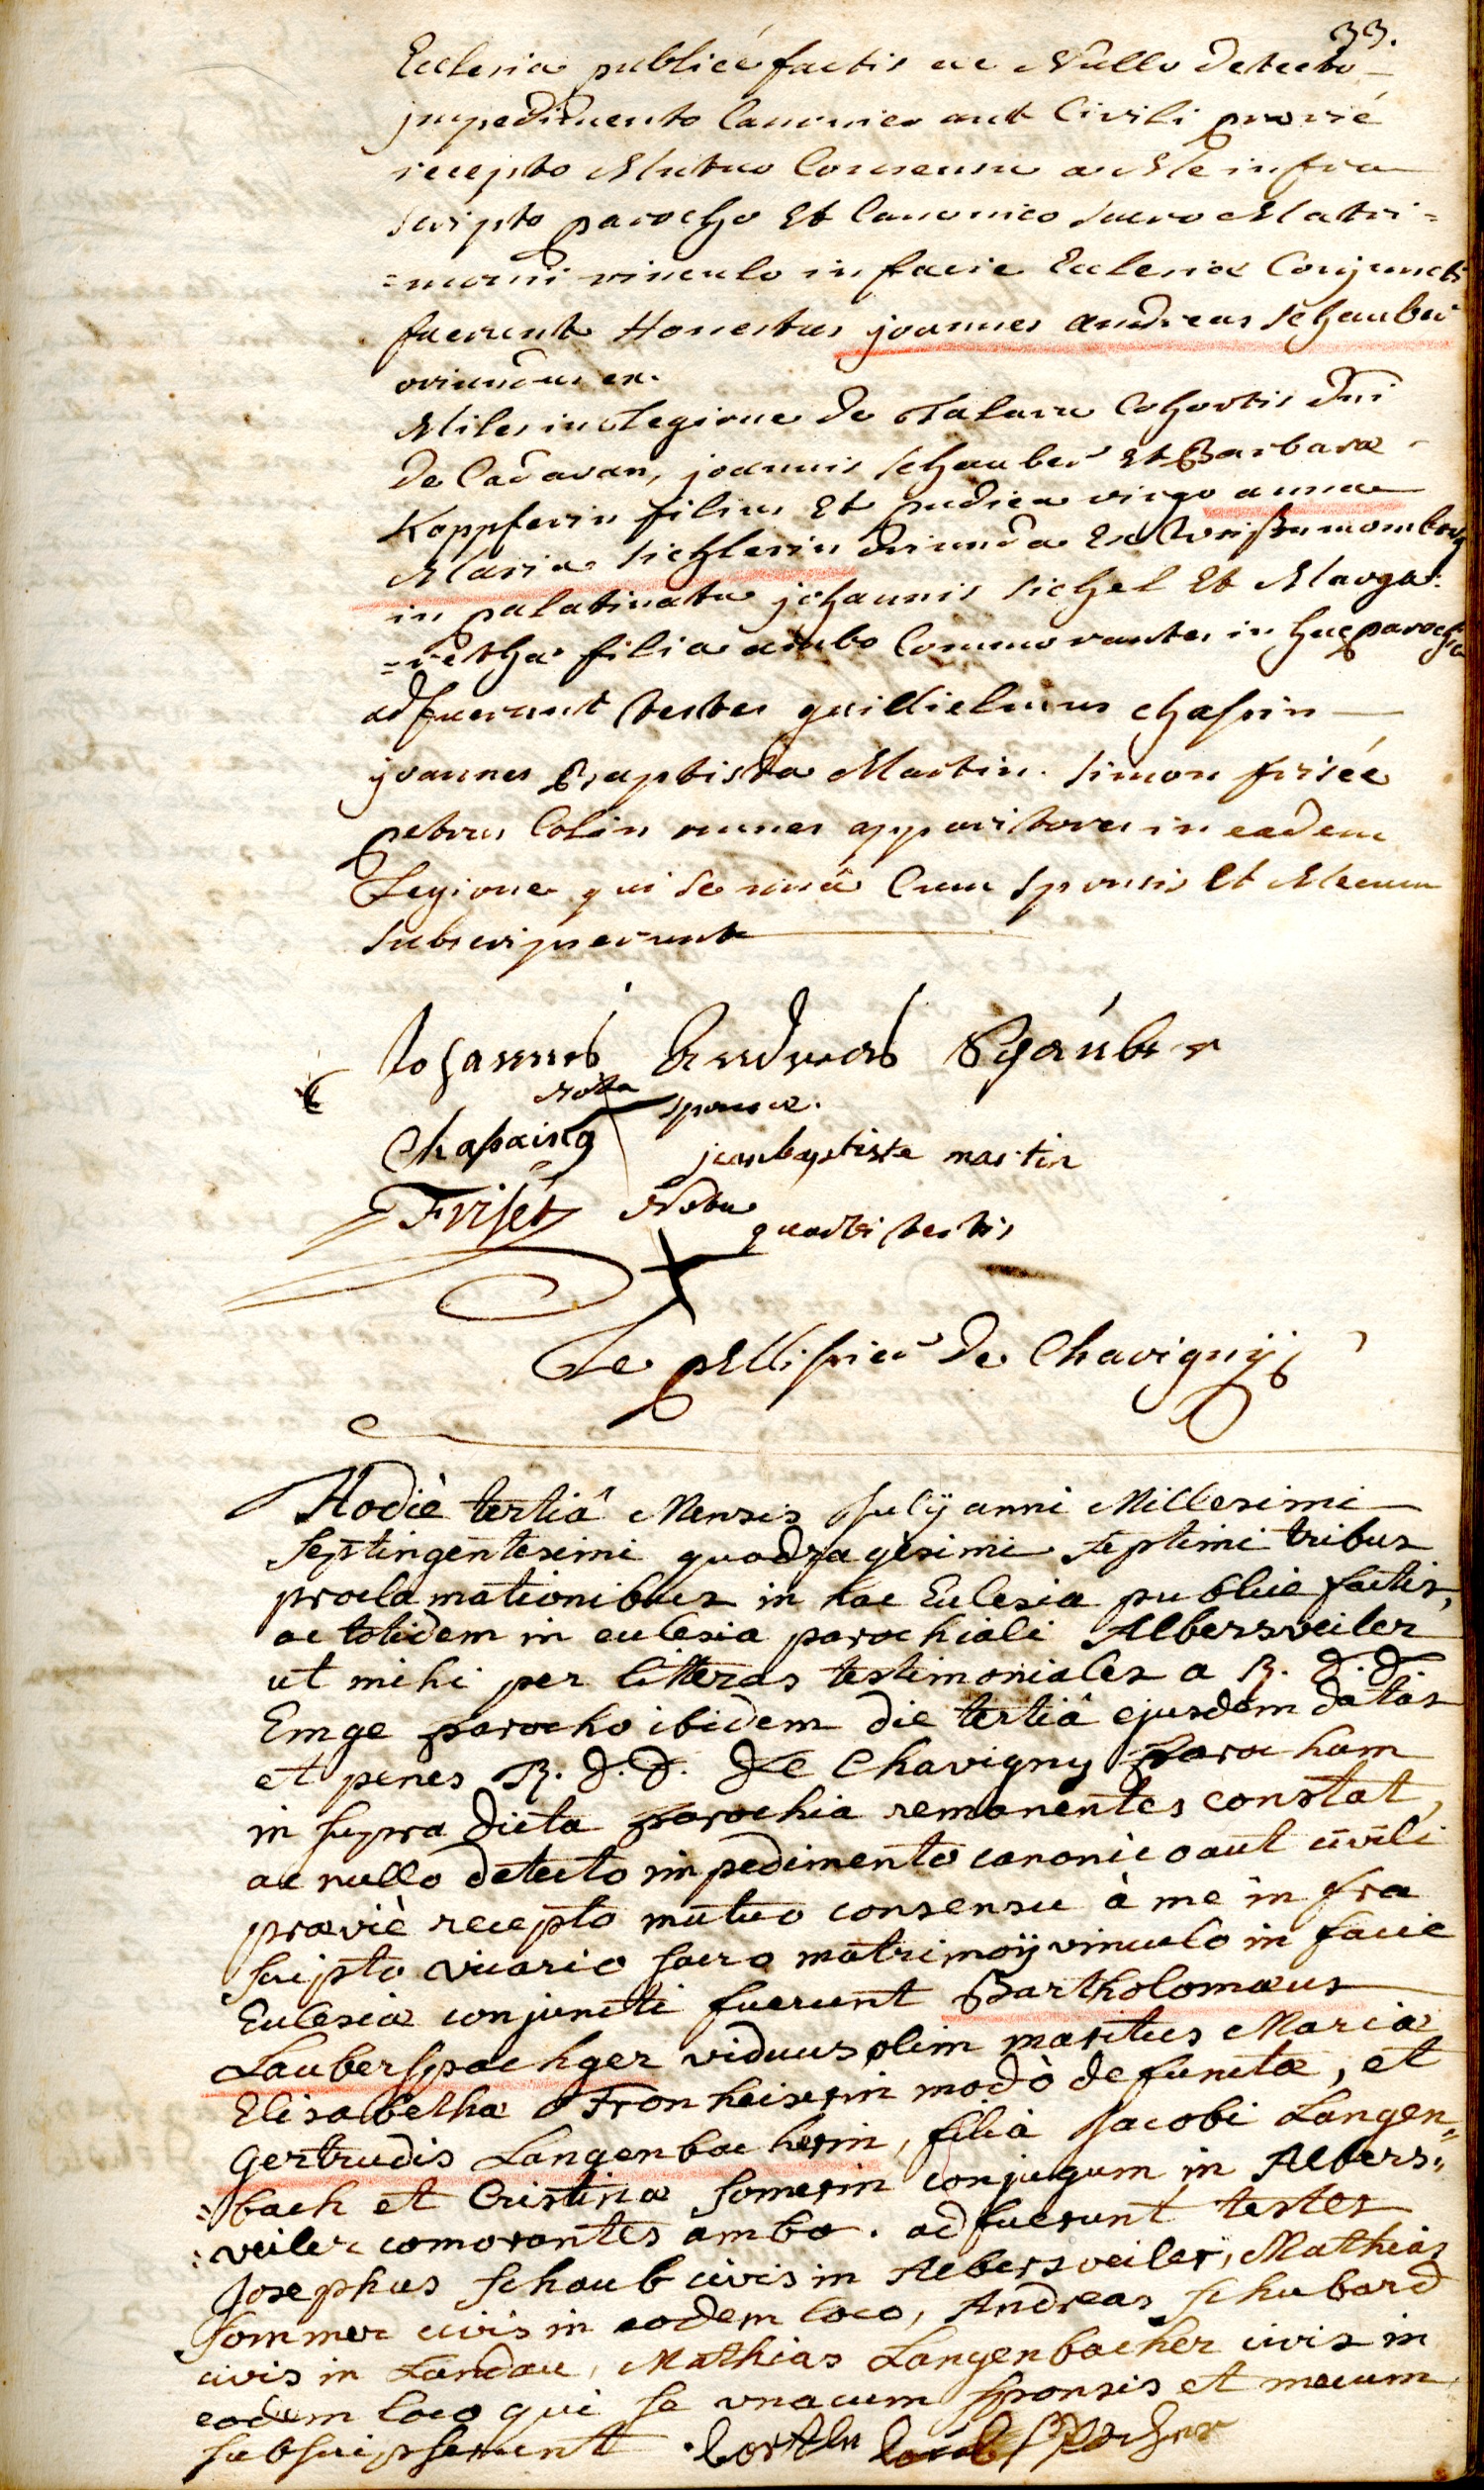 33.
Ecclesia publicé factis ac Nullo detecto
jmpedimento Canonico aut Civili prævié
recepto Mutuo Consensu a Me infra
scripto parocho Et Canonico sacro Matri=
=monii vinculo in facie Ecclesiæ Conjuncti
fuerunt Honestus joannes andreas schauber
oriundus ex.
Miles in Legione de Talaru Cohortis Dni
de Cadavan, joannis schauber Et Barbaræ
Koppferin filius Et pudica virgo anna
Maria sichlerin oriunda Ex
in palatinatu johannis sichel Et Marga:
=retha filia ambo Commorantes in hac parochia
adfuerunt testes guillielmus chassin
joannes Baptista Martin. simon friséé
petrus Colin omnes apparitores in eadem
Legione qui se unâ Cum sponsis Et Mecum
subscripserunt
Johannes Andreas Schauber
Nota sponsæ.
Chassaing jeanbaptiste martin
Friset Nota
quarti testis
Le pellissier de Chavignÿ
Hodiè tertiâ Mensis Julÿ anni Millesimi
septingentesimi quadragesimi septimi tribus
proclamationibus in hac Eclesia publice factis,
ac totidem in eclesia parochiali Albersveiler
ut mihi per litteras testimoniales a R. D. D.
Emge parocho ibidem die tertiâ ejusdem datas
et penes R. D. D. De Chavigny parochum
in supra dicta parochia remanentes constat,
ac nullo detecto impedimento canonico aut civili
præviè recepto mutuo consensu à me infra
scripto vicario sacro matrimoÿ vinculo in facie
Eclesiæ conjuncti fuerunt Bartholomæus
Lauberspachger viduus olim maritus Mariæ
Elisabethæ Fronheiserin modò defunctæ, et
Gertrudis Langenbacherin, filia Jacobi Langen=
=bach et Cristinæ somerin conjugum in Albers=
=veiler comorantes ambo. adfuerunt testes
Josephus schaub civis in Albersveiler, Mathias
sommer civis in eodem loco, Andreas schubard
civis in Landau, Mathias Langenbacher civis in
eodem loco qui se unacum sponsis et mecum
subscripserunt